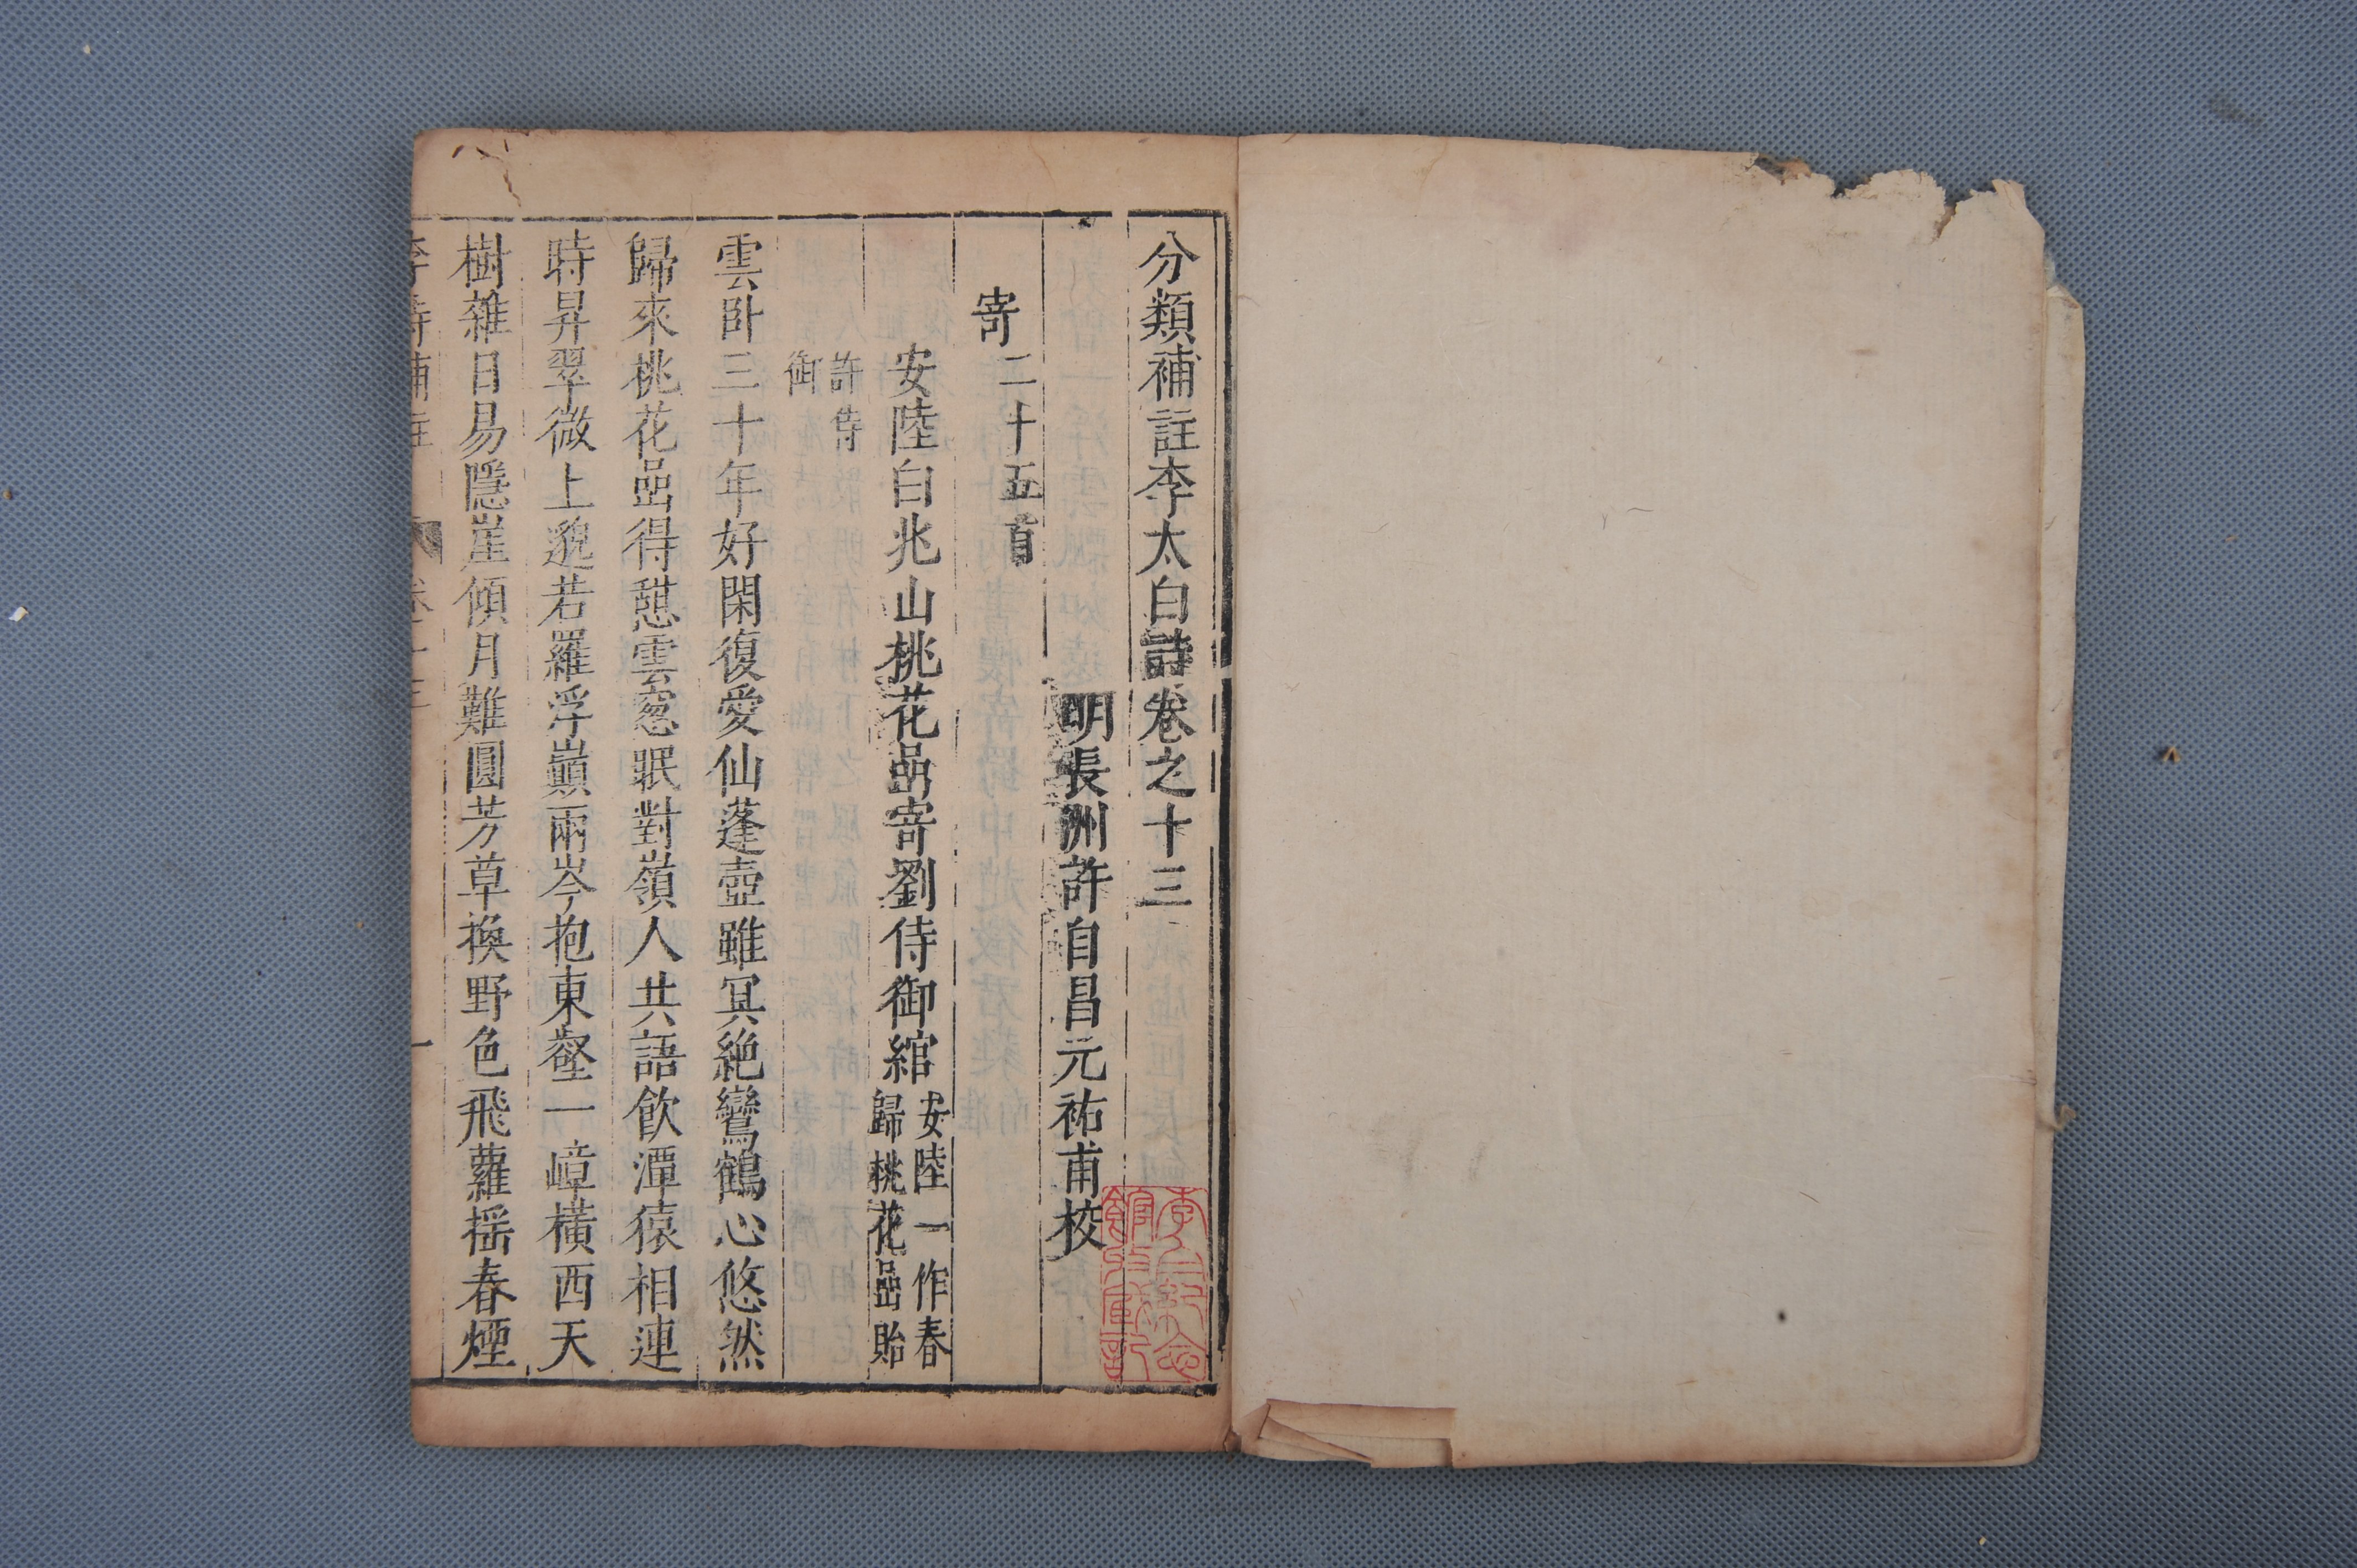 分類補註李太白詩卷之十三
明長洲許自昌元祐甫校
寄二十五首
安陸白兆山桃花嵒寄劉侍御綰
安陸一作春
歸桃花嵒貽
許侍
御
雲卧三十年好閑復愛仙蓬壺雖冥絶鸞鶴心悠然
歸來桃花嵒得憇雲窓眠對嶺人共語飲潭猿相連
時昇翠微上邈若羅浮巔兩岑抱東壑一嶂横西天
樹雜日易隱崖傾月難圓芳草換野色飛蘿揺春煙
李詩補註 卷十三 一